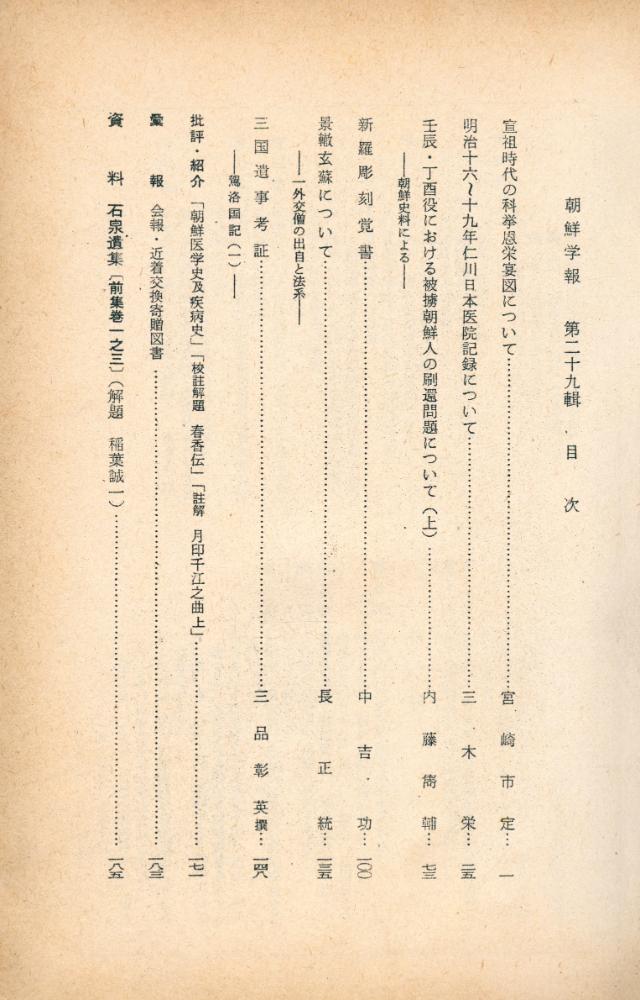 朝鮮学報　第二十九輯　目　次
宣祖時代の科挙恩栄宴図について…………宮崎市定…一
明治十六〜十九年仁川日本医院記録について…………三木栄…二五
壬辰・丁酉役における被擄朝鮮人の刷還問題について（上）…………内藤雋輔…七三
――朝鮮史料による――
新羅彫刻覚書…………中吉功…一〇〇
景轍玄蘇について…………長正統…一三五
――一外交僧の出自と法系――
三国遺事考証…………三品彰英撰…一四八
――駕洛国記（一）――
批評・紹介　「朝鮮医学史及疾病史」「校註解題　春香伝」「註解　月印千江之曲上」…………一七一
彙　報　会報・近着交換寄贈図書…………一八三
資　料　石泉遺集〔前集巻一之三〕（解題　稲葉誠一）…………一八五